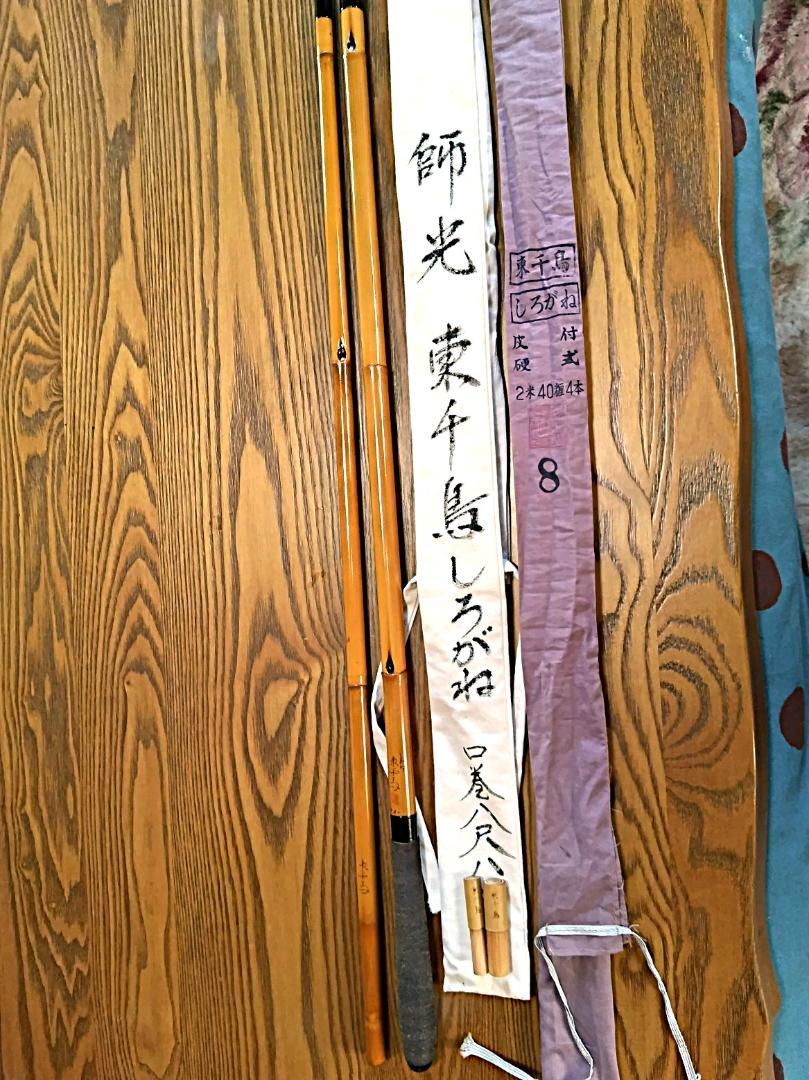 師光 東千鳥しろがね
口巻八尺八
東千鳥
しろがね
皮 付
硬 式
2米40糎4本
8